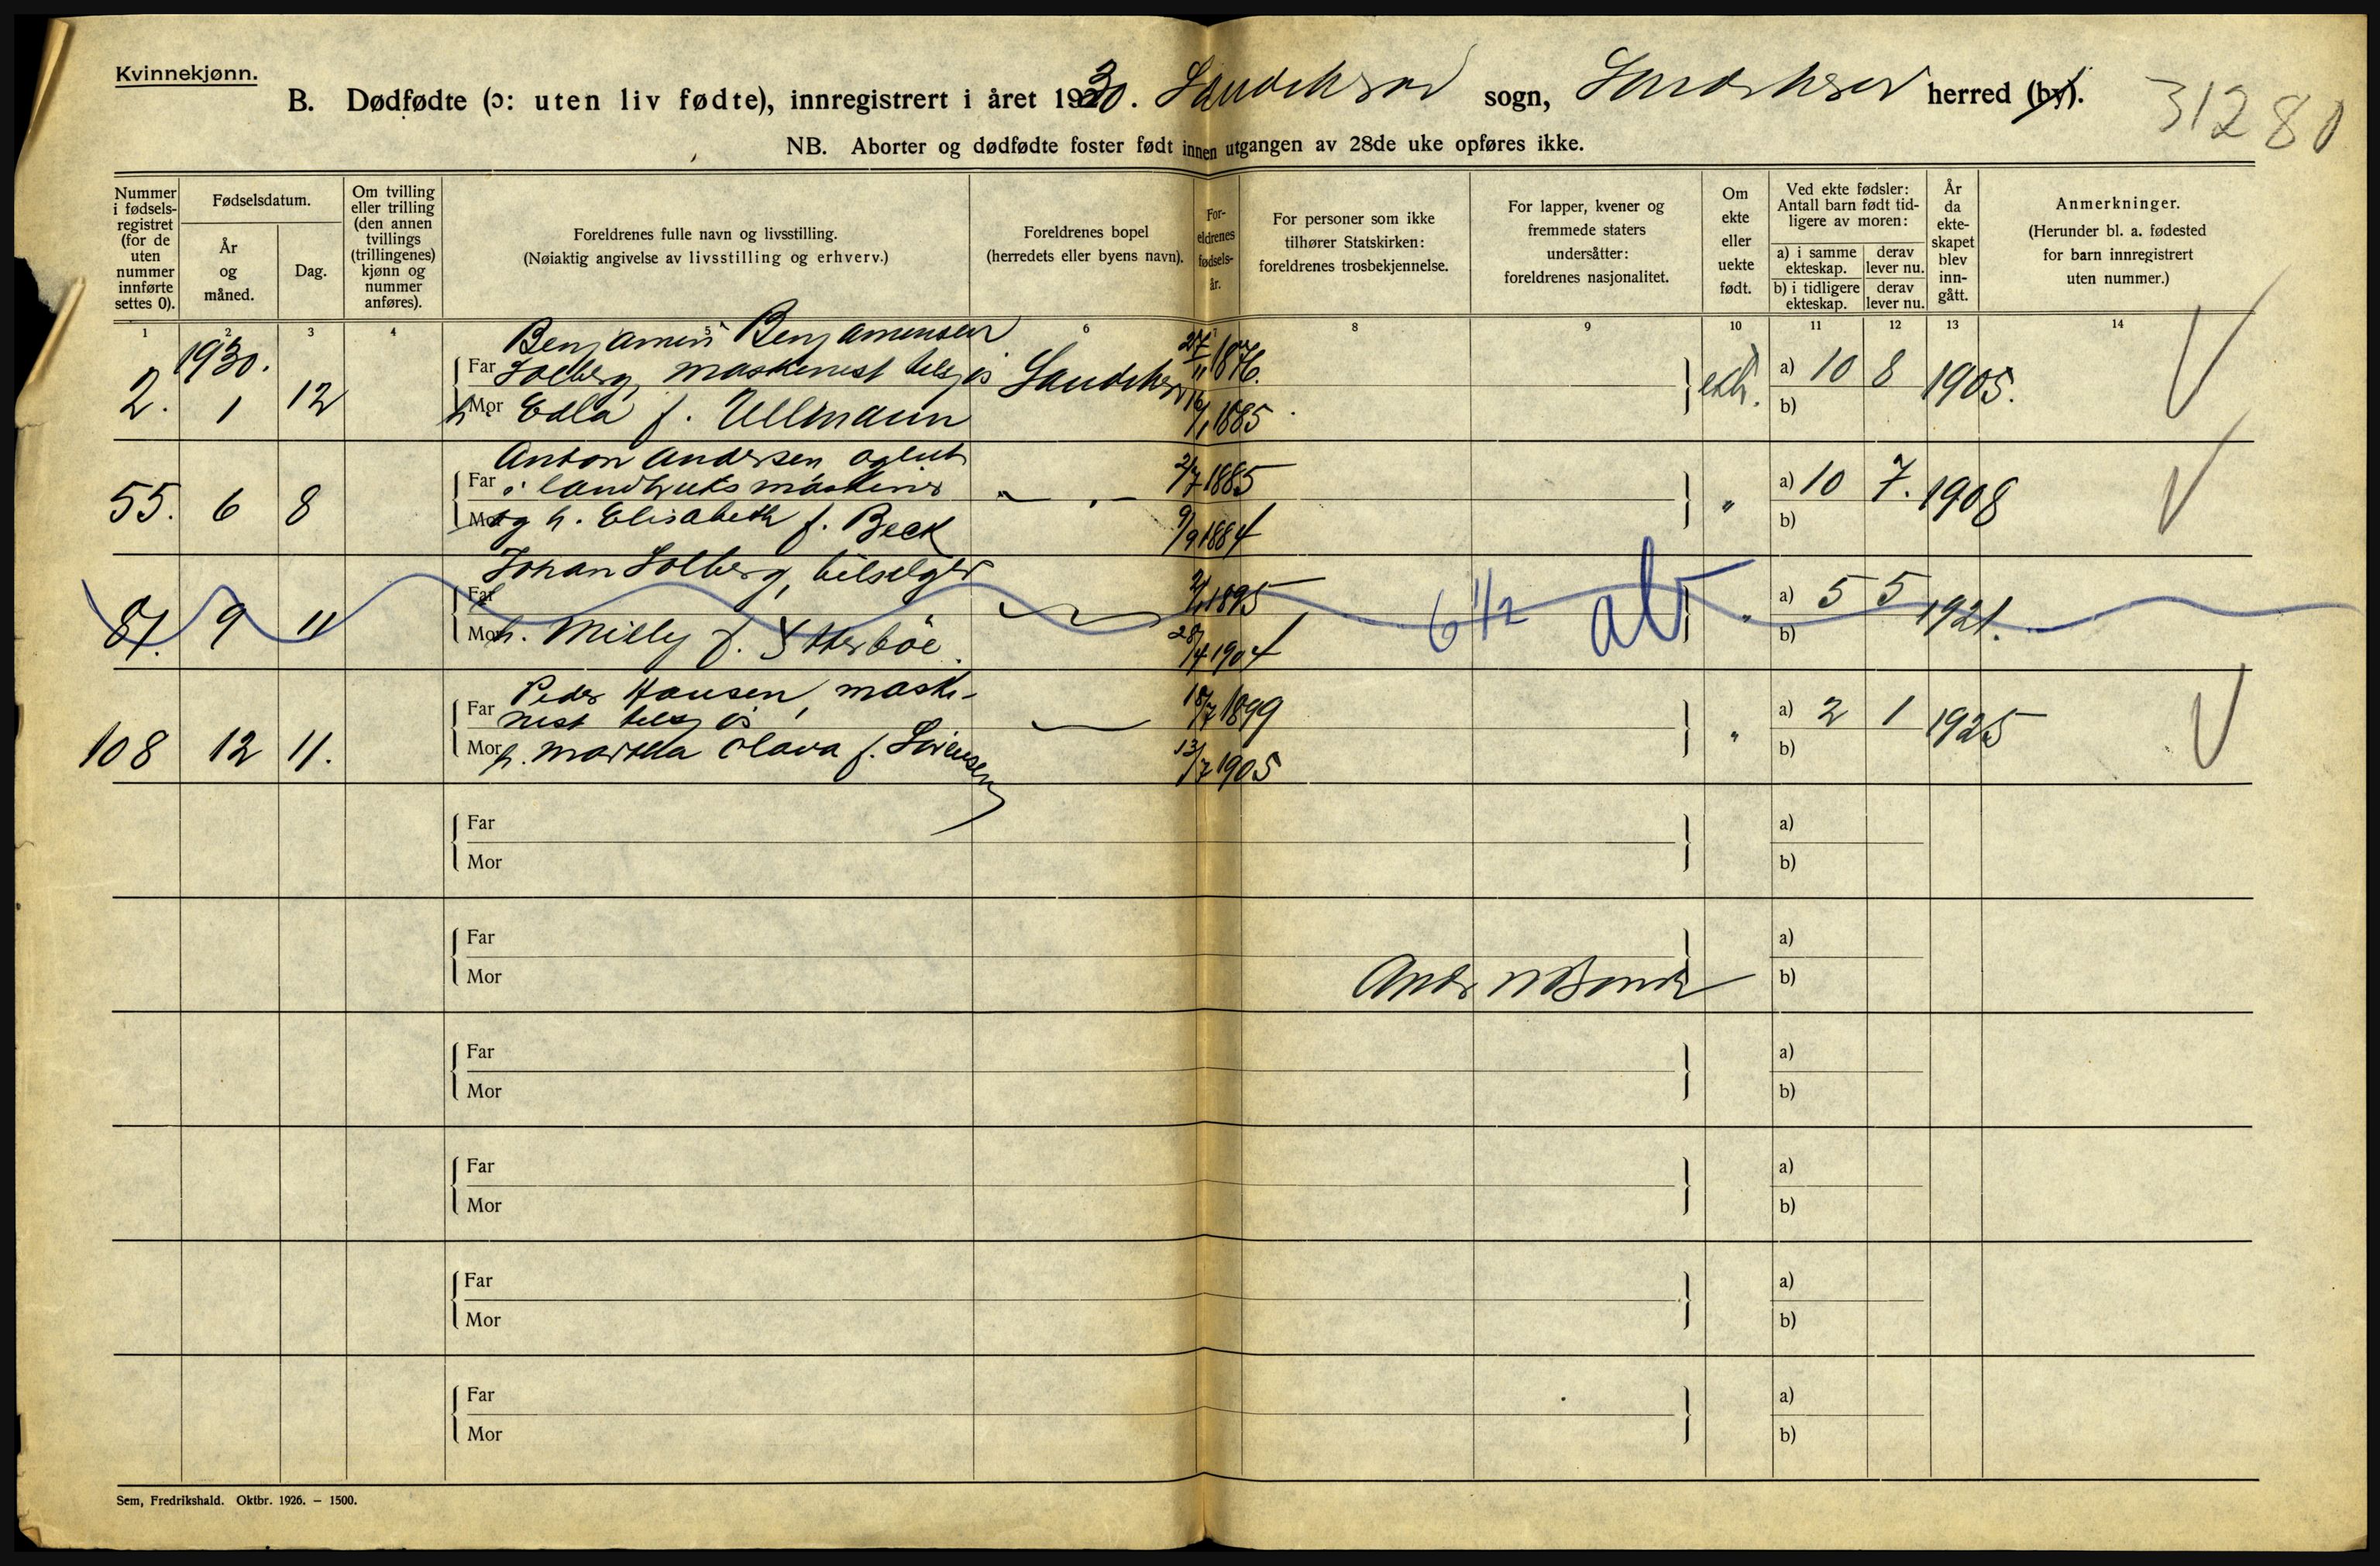 Kvinnekjønn.
B. Dødfødte (ɔ: uten liv fødte), innregistrert i året 1930. Sandeherad sogn, Sandeherad herred (by).
31280
NB. Aborter og dødfødte foster født innen utgangen av 28de uke opføres ikke.
Nummer i fødsels-registret (for de uten nummer innførte settes 0).
Fødselsdatum.
År og måned.
Dag.
Om tvilling eller trilling (den annen tvillings (trillingenes) kjønn og nummer anføres).
Foreldrenes fulle navn og livsstilling.
(Nøiaktig angivelse av livsstilling og erhverv.)
Foreldrenes bopel
(herredets eller byens navn).
For-eldrenes fødsels-år.
For personer som ikke tilhører Statskirken: foreldrenes trosbekjennelse.
For lapper, kvener og fremmede staters undersåtter: foreldrenes nasjonalitet.
Om ekte eller uekte født.
Ved ekte fødsler: Antall barn født tid-ligere av moren:
a) i samme ekteskap.
derav lever nu.
b) i tidligere ekteskap.
derav lever nu.
År da ekte-skapet blev inn-gått.
Anmerkninger.
(Herunder bl. a. fødested for barn innregistrert uten nummer.)
1 2 3 4 5 6 7 8 9 10 11 12 13 14
1930.
Benjamin Benjaminsen
2. 1 12 Far Solberg, maskinist tilsjøs Sandeherad 27/11 1876. ekte. a) 10 8 1905.
Mor h. Edla f. Ullmann 16/1 1885 b)
Anton Andersen agent
55. 6 8 Far i landbruksmaskiner 2/7 1885 " a) 10 7. 1908
Mor og h. Elisabeth f. Beck 9/9 1884 b)
Johan Solberg, bilselger
87. 9 11 Far 1895 6 1/2 " a) 5 5 1921.
Mor h. Milly f. Ytterböe. 28/4 1904 b)
Peder Hansen, maski-
108 12 11. Far nist tilsjøs 18/7 1899 " a) 2 1 1925
Mor h. Martha Olava f. Sørensen 13/7 1905 b)
Far a)
Mor b)
Far a)
Mor b)
Far a)
Mor b)
Far a)
Mor b)
Far a)
Mor b)
Far a)
Mor b)
Sem, Fredrikshald. Oktbr. 1926. – 1500.